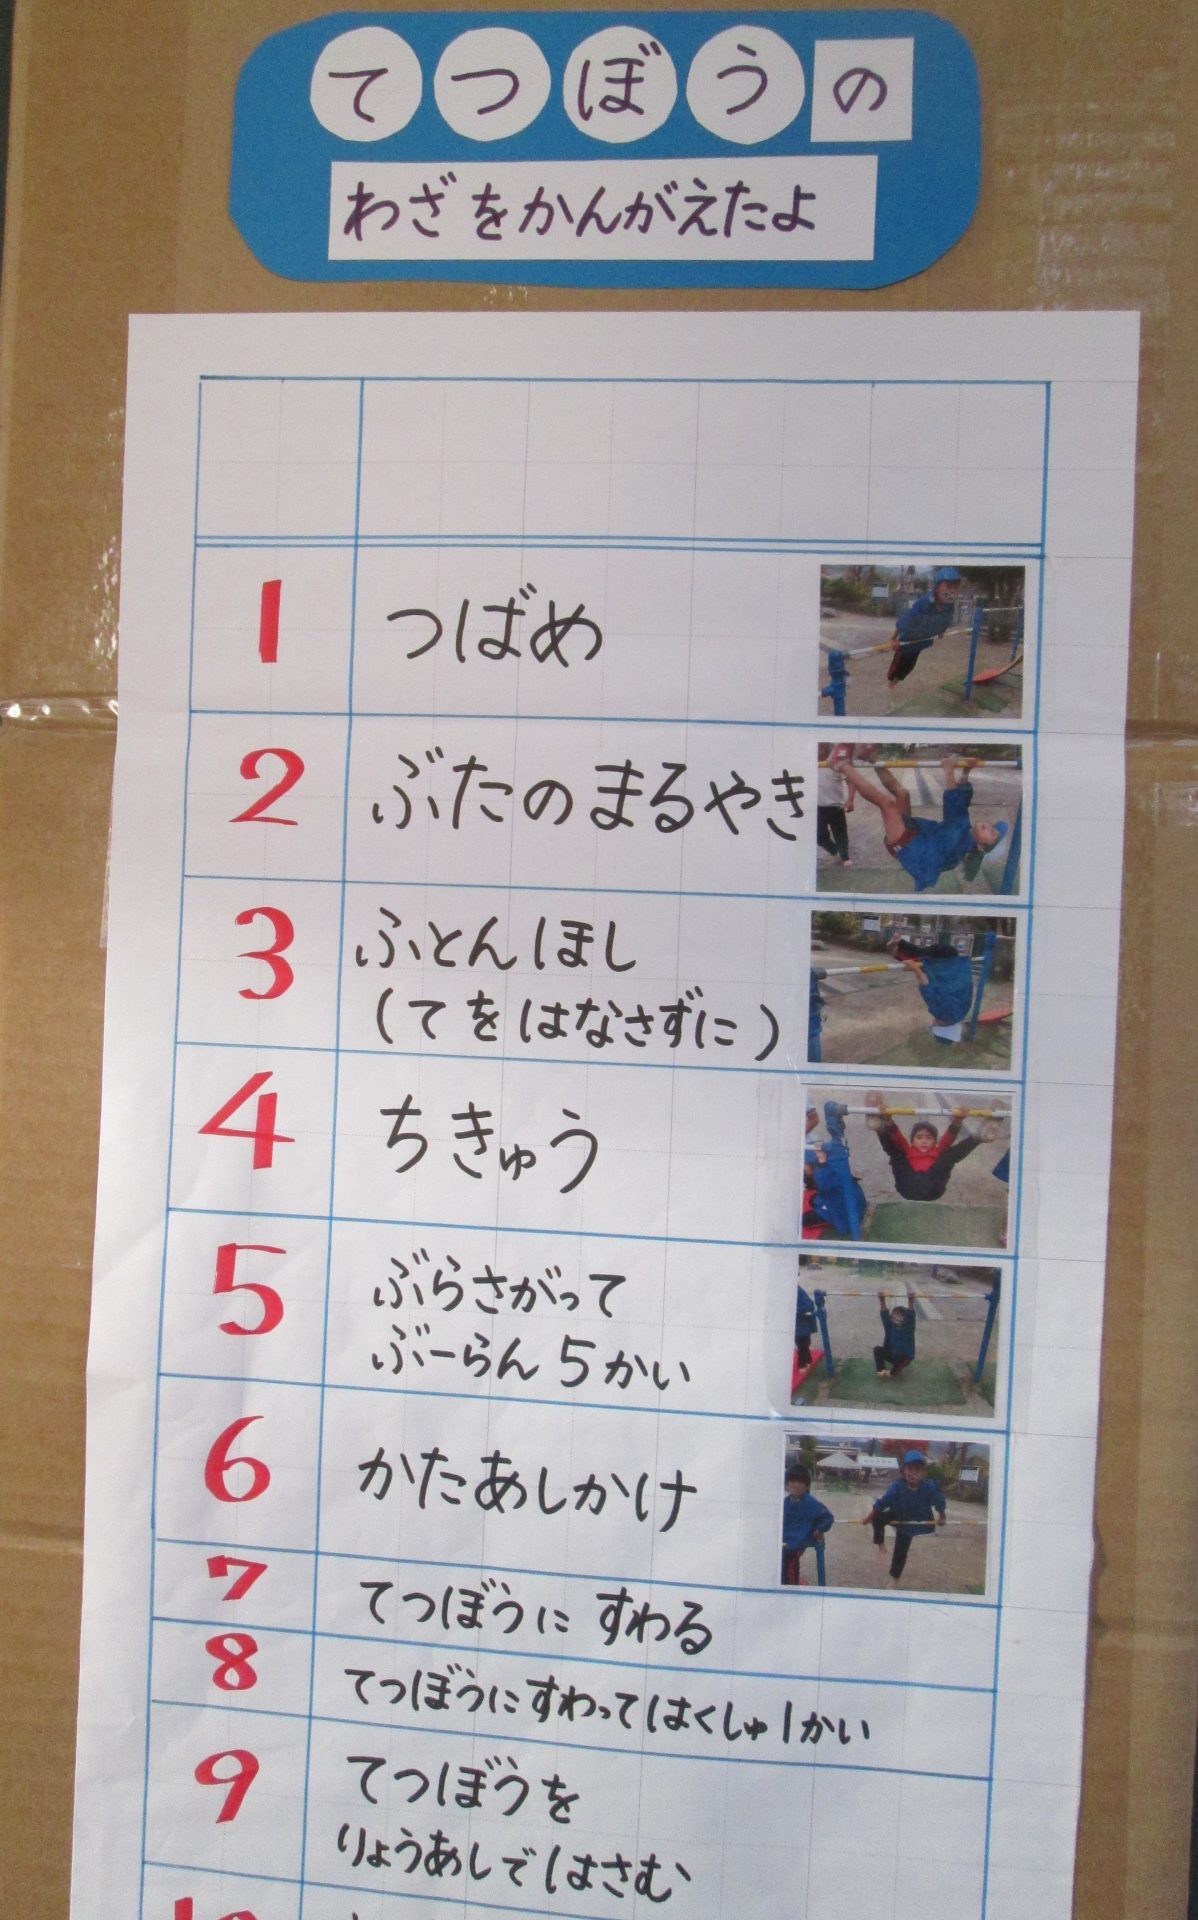 てつぼうの
わざをかんがえたよ
1 つばめ
2 ぶたのまるやき
3 ふとんほし
(てをはなさずに)
4 ちきゅう
5 ぶらさがって
ぶーらん5かい
6 かたあしかけ
7 てつぼうに すわる
8 てつぼうにすわってはくしゅ1かい
9 てつぼうを
りょうあしではさむ
10